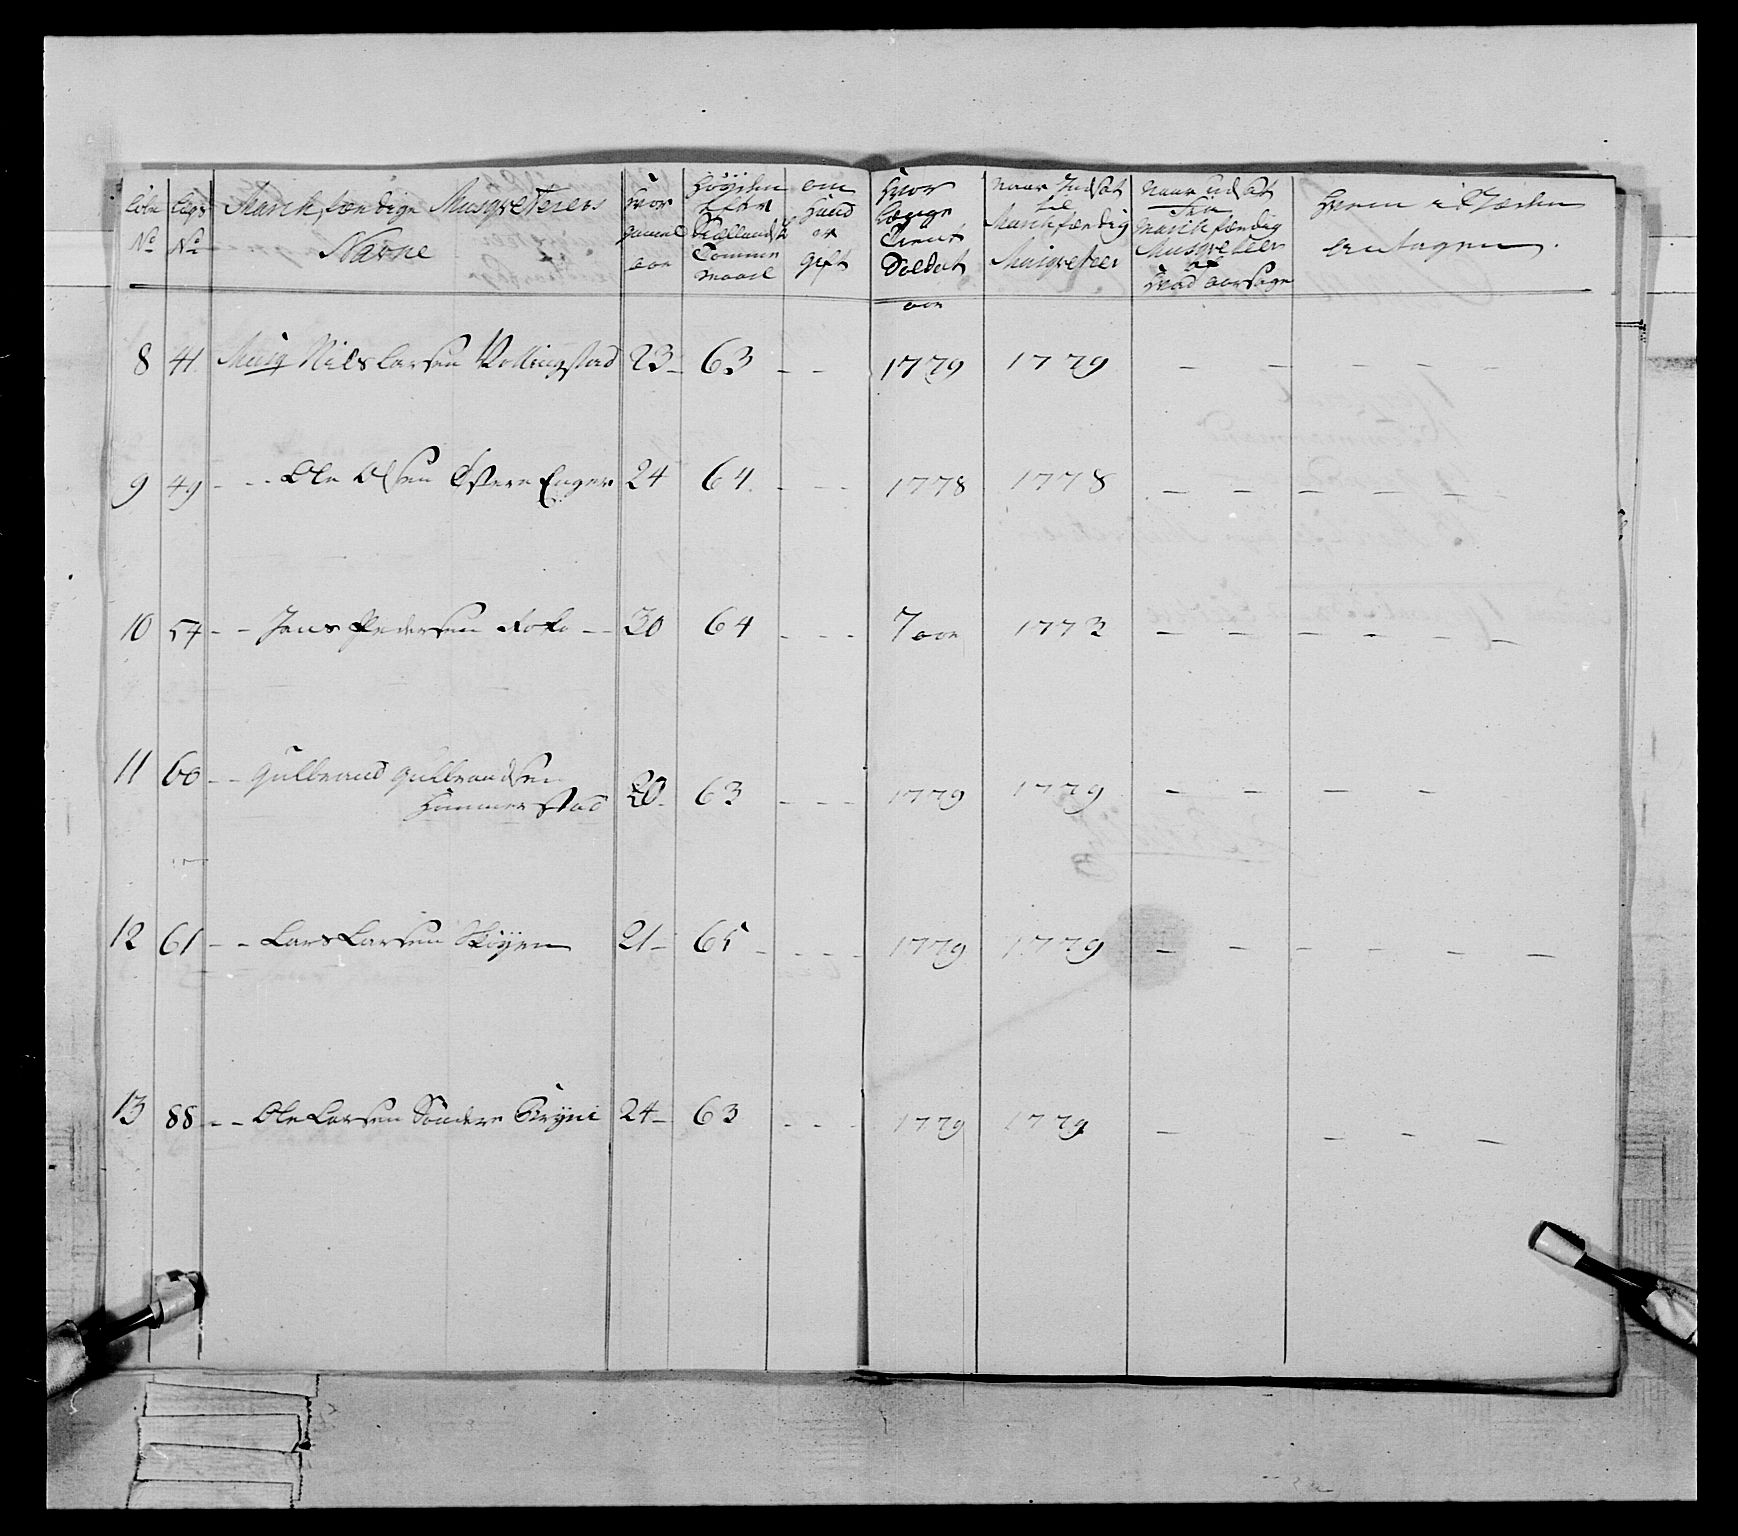 Lobe No | Lægs No | Marsk færdige Musqveterers Navne | Hvor gammel aar | Høyden efter Siællandsk Tomme maal | om Hand er gift | Hvor længe Tient Soldat aar | naar Indsat til Marsk færdig Musqveteer | naar udsat fra marsk færdig Musqveteer af hvad aarsage | Hvem i Stæden antagen.
8 | 41 | Musq Nils Larsen Vollingstad | 23 - | 63 | - - | 1779 | 1779 | - - - - - -
9 | 49 | - - Ole Olsen Østere Enger | 24 | 64. | - - - | 1778 | 1778 | - - - - - -
10 | 54 | - - Jens Pedersen Foko - - | 30 | 64 | - - - | 7 aar | 1773 | - - - - - -
11 | 60 | - - Gulbrand Gulbrandsen
Hammerstad | 20 - | 63 | - - - | 1779 | 1779 | - - - -
12 | 61 | - - Lars Larsen Skøyen | 21 - | 65 - | - - - | 1779 | 1779 | - - - - - -
13 | 88 | - - Ole Larsen Søndere Kryni | 24 - | 63 | - - - | 1779 | 1779 | - - - - -